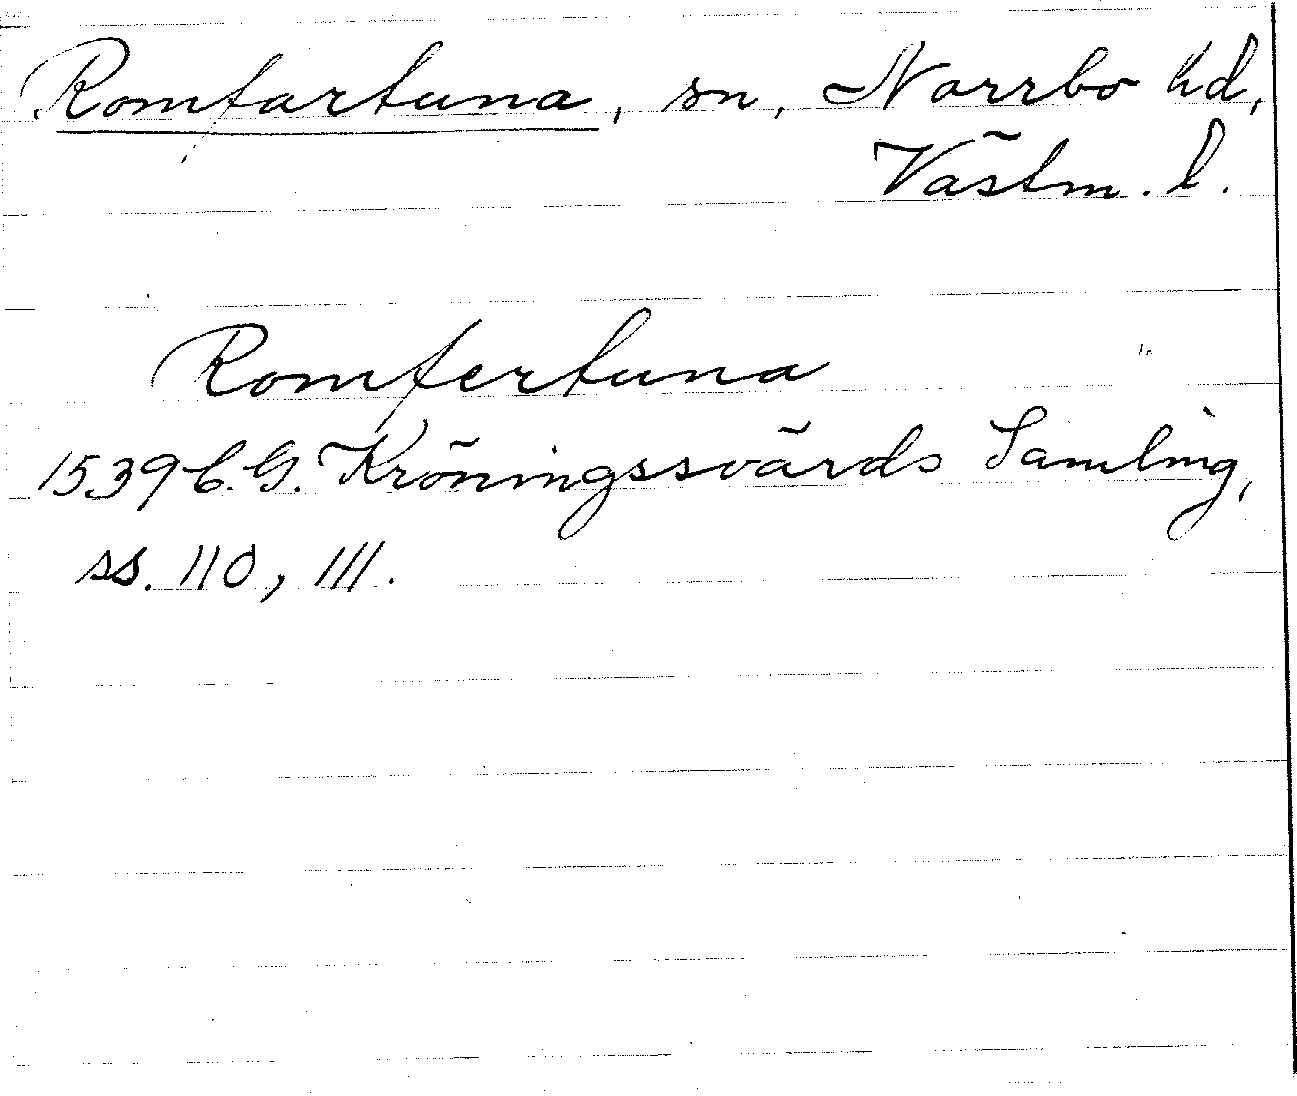 Romfartuna, sn, Norrbo hd,
Västm. l.
Romfertuna
1539 C. G. Kröningssvärds Samling,
ss. 110, 111.